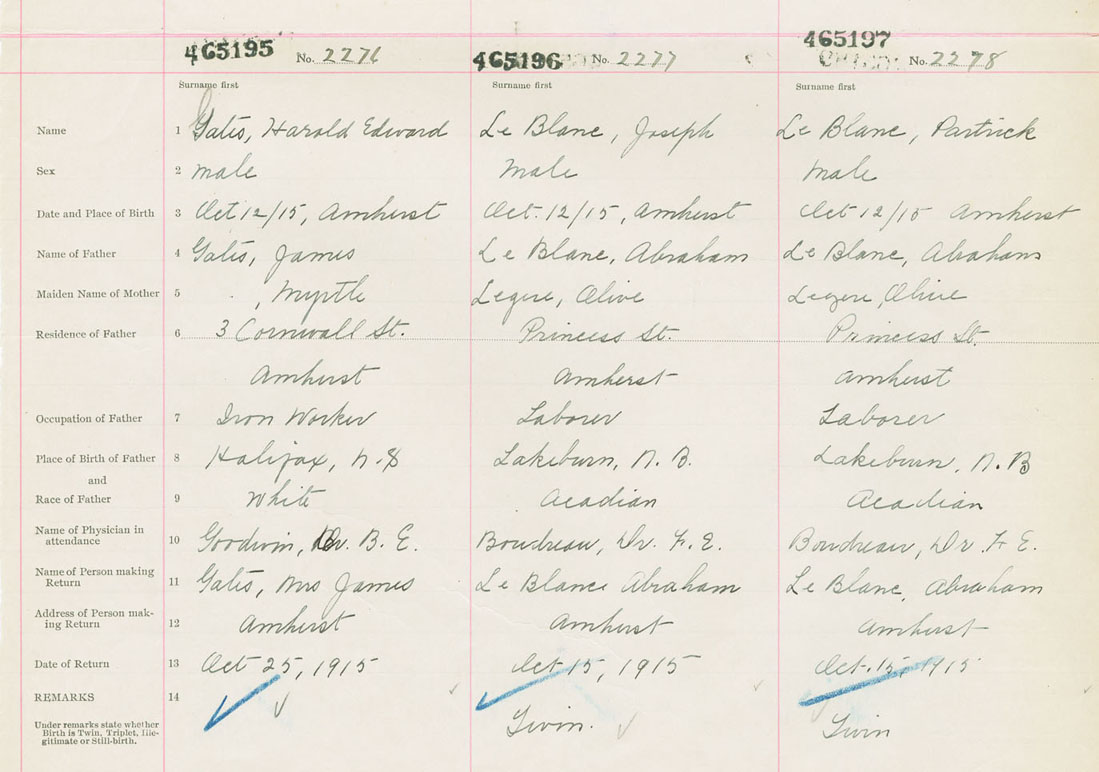 465195 No. 2276 465196 No. 2277 465197 No. 2278
Surname first Surname first Surname first
Name 1 Gates, Harold Edward Le Blanc, Joseph Le Blanc, Partrick
Sex 2 male Male Male
Date and Place of Birth 3 Oct 12/15, Amherst Oct. 12/15, Amherst Oct 12/15 Amherst
Name of Father 4 Gates, James Le Blanc, Abraham Le Blanc, Abraham
Maiden Name of Mother 5 , Myrtle Legere, Olive Legere, Olive
Residence of Father 6 3 Cornwall St. Princess St. Princess St.
Amherst Amherst Amherst
Occupation of Father 7 Iron Worker Laborer Laborer
Place of Birth of Father 8 Halifax, N.S Lakeburn, N. B. Lakeburn, N. B
and
Race of Father 9 White Acadian Acadian
Name of Physician in
attendance 10 Goodwin, Dr. B. E. Boudreau, Dr. F. E. Boudreau, Dr F. E.
Name of Person making
Return 11 Gates, Mrs James Le Blanc Abraham Le Blanc, Abraham
Address of Person mak-
ing Return 12 Amherst Amherst Amherst
Date of Return 13 Oct 25, 1915 Oct 15, 1915 Oct. 15, 1915
REMARKS 14
Under remarks state whether
Birth is Twin, Triplet, Ille-
gitimate or Still-birth.
Twin. Twin